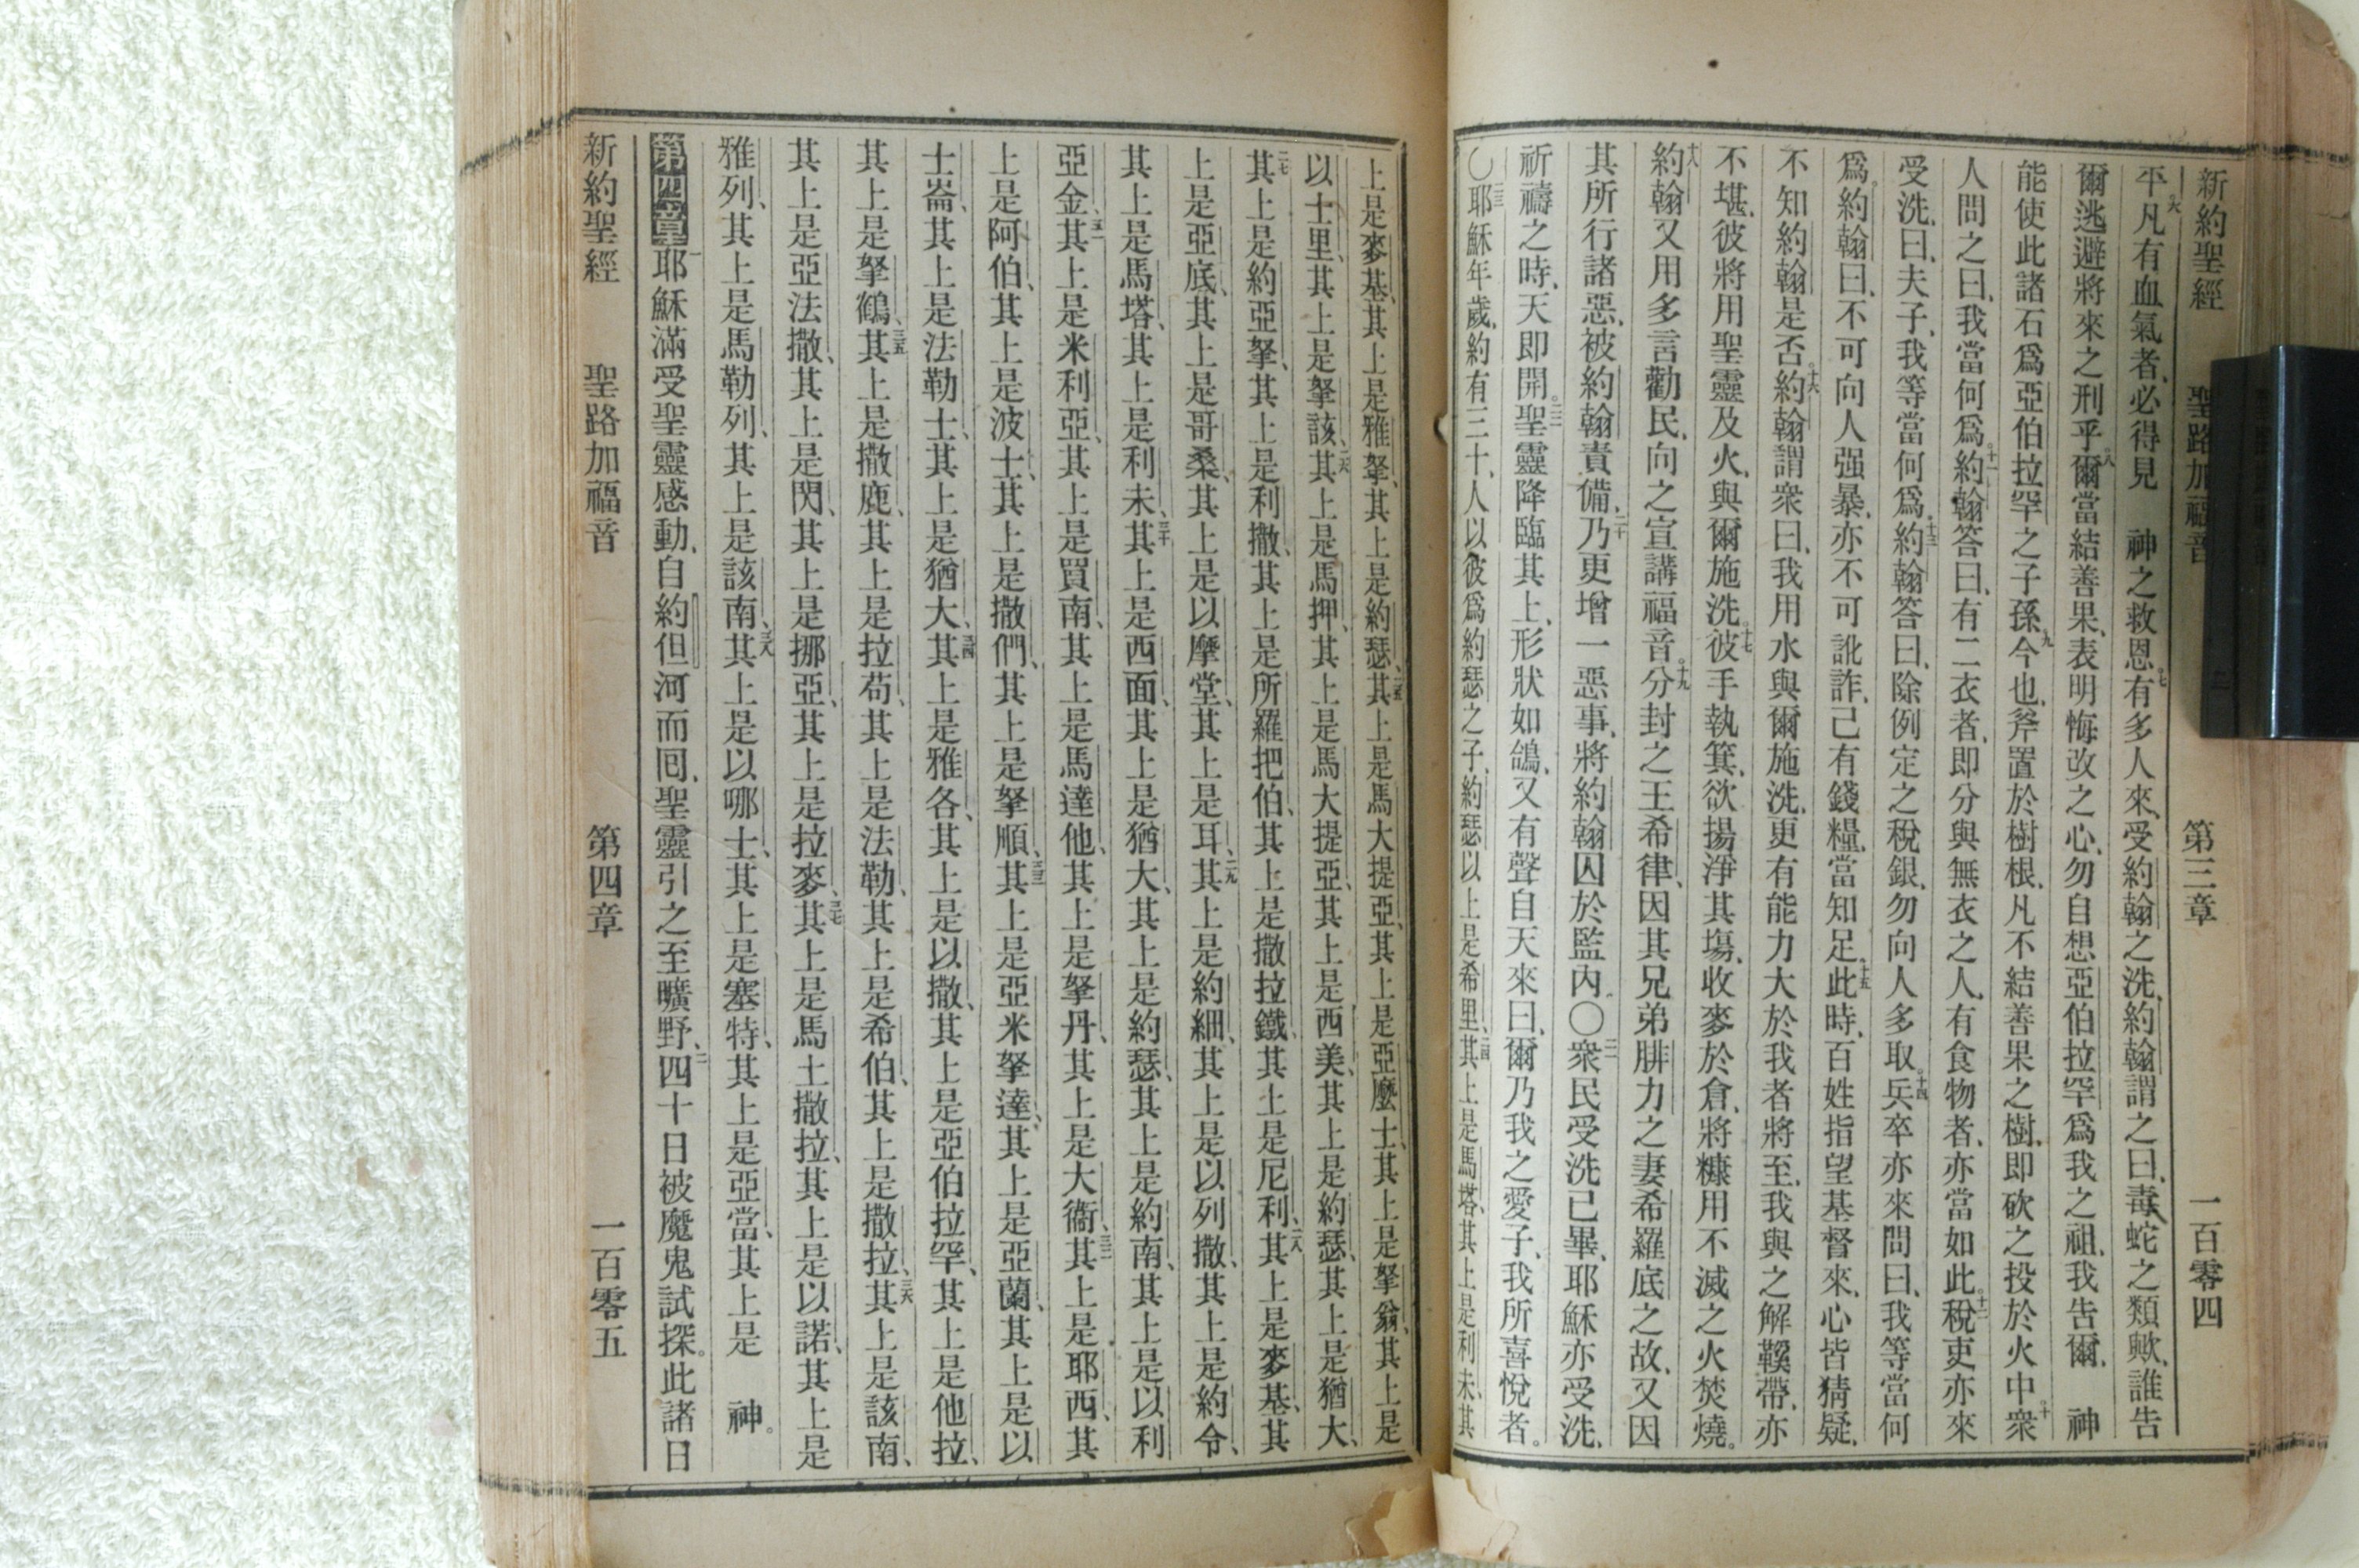 新約聖經 聖路加福音 第三章 一百零四
平。六凡有血氣者、必得見 神之救恩。七有多人來、受約翰之洗、約翰謂之曰、毒蛇之類歟、誰告
爾逃避將來之刑乎。八爾當結善果、表明悔改之心、勿自想亞伯拉罕爲我之祖、我告爾、 神
能使此諸石爲亞伯拉罕之子孫。九今也、斧置於樹根、凡不結善果之樹、即砍之投於火中。十衆
人問之曰、我當何爲。十一約翰答曰、有二衣者、即分與無衣之人、有食物者、亦當如此。十二稅吏亦來
受洗、曰、夫子、我等當何爲。十三約翰答曰、除例定之稅銀、勿向人多取。十四兵卒亦來問曰、我等當何
爲。約翰曰、不可向人强暴、亦不可訛詐、己有錢糧、當知足。十五此時、百姓指望基督來、心皆猜疑、
不知約翰是否。十六約翰謂衆曰、我用水與爾施洗、更有能力大於我者將至、我與之解鞵帶、亦
不堪、彼將用聖靈及火、與爾施洗。十七彼手執箕、欲揚淨其塲、收麥於倉、將糠用不滅之火焚燒。
十八約翰又用多言勸民、向之宣講福音。十九分封之王希律、因其兄弟腓力之妻希羅底之故、又因
其所行諸惡、被約翰責備、二十乃更增一惡事、將約翰囚於監內。〇二一衆民受洗已畢、耶穌亦受洗、
祈禱之時、天即開。二二聖靈降臨其上、形狀如鴿、又有聲自天來曰、爾乃我之愛子、我所喜悅者。
〇二三耶穌年歲、約有三十、人以彼爲約瑟之子、約瑟以上是希里、二四其上是馬塔、其上是利未、其
上是麥基、其上是雅拏、其上是約瑟、二五其上是馬大提亞、其上是亞麼士、其上是拏翁、其上是
以士里、其上是拏該、二六其上是馬押、其上是馬大提亞、其上是西美、其上是約瑟、其上是猶大、
二七其上是約亞拏、其上是利撒、其上是所羅把伯、其上是撒拉鐵、其上是尼利、二八其上是麥基、其
上是亞底、其上是哥桑、其上是以摩堂、其上是耳、二九其上是約細、其上是以列撒、其上是約令、
其上是馬塔、其上是利未、三十其上是西面、其上是猶大、其上是約瑟、其上是約南、其上是以利
亞金、三一其上是米利亞、其上是買南、其上是馬達他、其上是拏丹、其上是大衞、三二其上是耶西、其
上是阿伯、其上是波士、其上是撒們、其上是拏順、三三其上是亞米拏達、其上是亞蘭、其上是以
士崙、其上是法勒士、其上是猶大、三四其上是雅各、其上是以撒、其上是亞伯拉罕、其上是他拉、
其上是拏鶴、三五其上是撒鹿、其上是拉苟、其上是法勒、其上是希伯、其上是撒拉、三六其上是該南、
其上是亞法撒、其上是閃、其上是挪亞、其上是拉麥、三七其上是馬土撒拉、其上是以諾、其上是
雅列、其上是馬勒列、其上是該南、三八其上是以哪士、其上是塞特、其上是亞當、其上是 神。
第四章 一耶穌滿受聖靈感動、自約但河而囘、聖靈引之至曠野、二四十日被魔鬼試探。此諸日
新約聖經 聖路加福音 第四章 一百零五